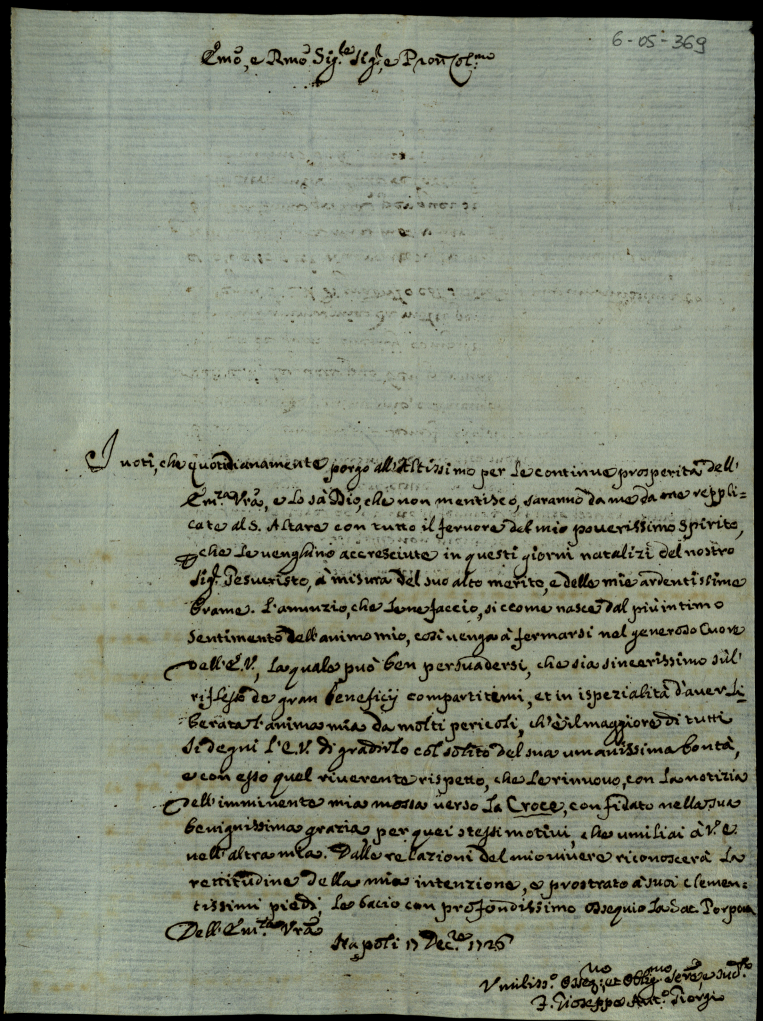 6-05-369
Emo, e Rmo Sig.re Sig.r, e Pron Col.mo
I voti, che quotidianamente porgo all'Altissimo per le continue prosperità dell'
Em.za Vra, e lo sà Dio, che non mentisco, saranno da me da me repli=
cate al S. Altare con tutto il fervore del mio poverissimo spirito,
che le venghino accresciute in questi giorni natalizi del nostro
Sig.r Gesucristo, à misura del suo alto merito, e delle mie ardentissime
brame. L'annuzio, che le ne faccio, siccome nasce dal più intimo
sentimento dell'animo mio, così venga à fermarsi nel generoso Cuore
dell'E.V., la quale può ben persuadersi, che sia sincerissimo sul'
riflesso de gran beneficij compartitemi, et in ispezialità d'aver li=
berata l'anima mia da molti pericoli, ch'è il maggiore di tutti
si degni l'E.V. di gradirlo col solito del sua umanissima bontà,
e con esso quel riverente rispetto, che le rinuovo, con la notizia
dell'imminente mia mossa verso la Croce, confidato nella sua
benignissima grazia, per quei stessi motivi, che umiliai à V.E.
nell'altra mia. Dalle relazioni del mio vivere riconoscerà la
rettitudine della mia intenzione, e prostrato à suoi clemen=
tissimi piedi, le bacio con profondissimo ossequio la Sac. Porpora
Dell'Em.za Vra
Napoli 17 Dec.re 1726
Umiliss.o Osseq.mo et Obblig.mo Serv.e, e Sud.to
F. Gioseppe Ant.o Giorgi